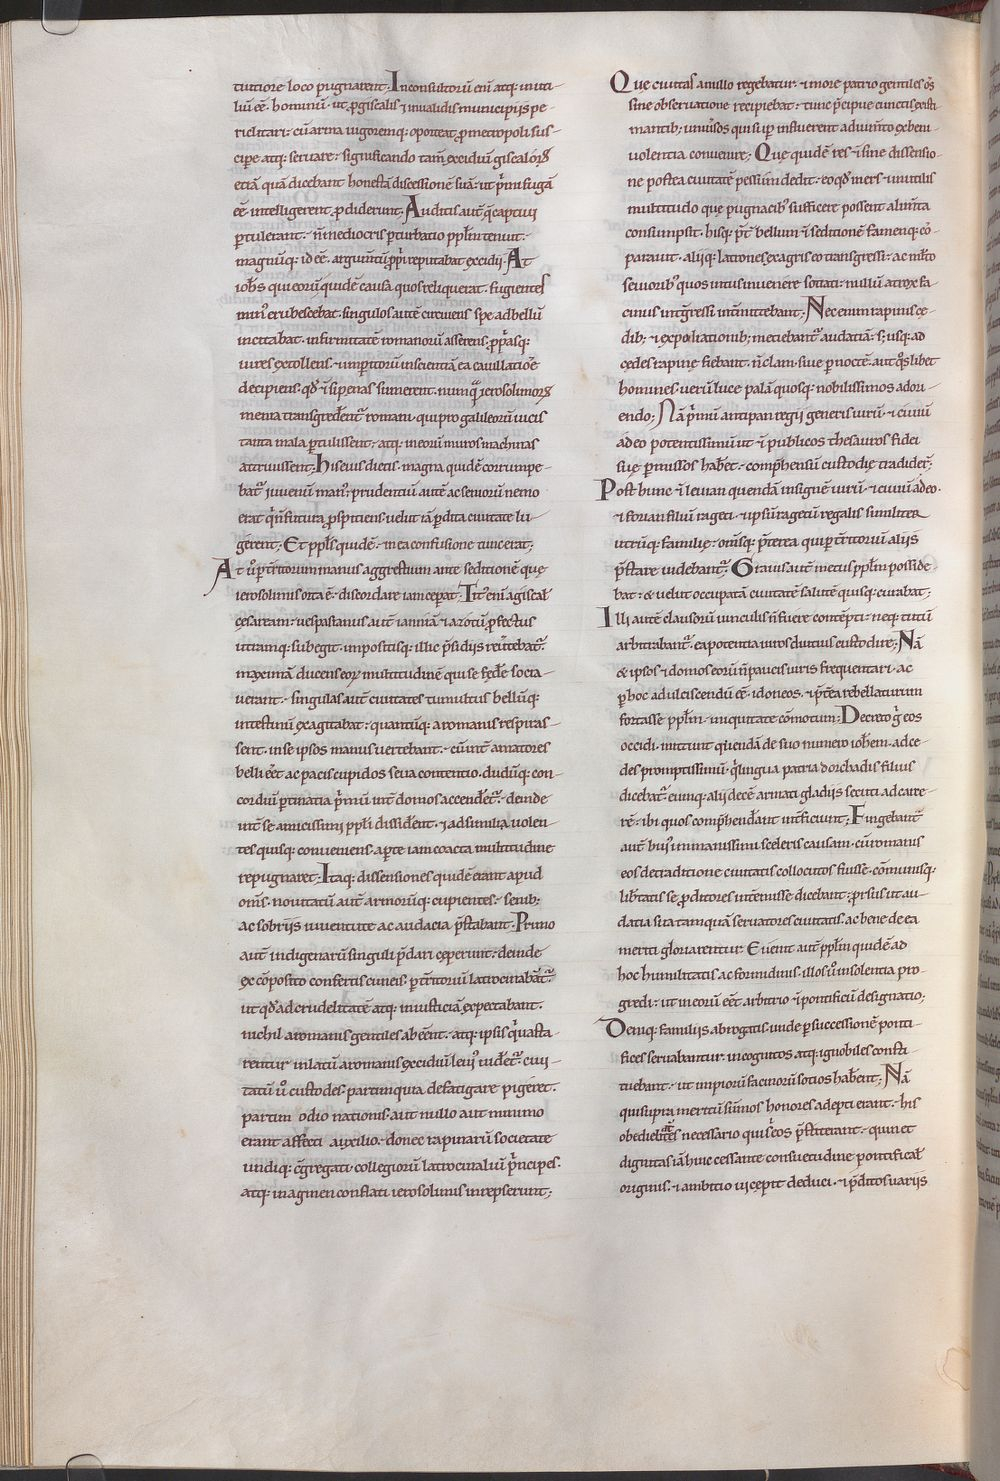 tutiore loco pugnarent. Inconsultorū enī atq; inuti-
liū eē. hominū. ut ꝓ giscalis ⁊ inualidis municipijs pe-
riclitari: cū arma uigoremq; oporteat ꝓ metropoli sus-
cipe atq; seruare: significando tam̄ excidiū giscalorꝝ
etiā quā dicebant honestā discessionē suā: ut p̄mi fugā
eē intelligerent ꝓdiderunt. Auditis autē q̄ captiui
ꝑtulerant: n̄ mediocris ꝑturbatio pp̄lm tenuit:
magnūq; id eē. argum̄tū ꝓpⁱ reputabat excidii. At
ioh̄s qui eorū quidē causa quos reliquerat. fugientes
min᾽ erubescebat. singulos autē circuiens spe ad bellū
incitabat. infirmitatē romanorū asserens. ꝓpriasq:
uires extollens. ⁊ imꝑitorū inscientiā ea cauillatiōe
decipiens. qđ ⁊ si penas sumerent. nūquā ierosolimorꝝ
menia transgredent᷑ romani. qui pro galileorū uicis
tanta mala ꝑtulissent: atq: in eorū muros machinas
attriuissent; His eius dictis. magna quidē corrumpe-
bat᷑ iuuenū man᾽; prudentiū autē ac seniorū nemo
erat qⁱn futura ꝓspitiens. uelut iā ꝑdita ciuitate lu-
gerent; Et ppl̄s quidē. in ea confusione tunc erat;
At ū ꝑ territorium manus aggrestium ante seditionē que
ierosolimis orta ē: discordare iam ceperat. Tit᾽ enī a giscal
cesaream: uespasianus autē iamniā ⁊ azotū ꝓfectus
utramq; subegit. impositisq; illic p̄sidijs reuertebat᷑.
maximā ducens eorꝝ multitudinē qui se fędere socia-
uerant: singulas autē ciuitates tumultus bellūq;
intestinū exagitabat: quantūq; a romanis respiras-
sent. in se ipsos manus uertebant: cū int̄ amatores
belli eēt ac pacis cupidos seua contentio. dudūq: con-
cordiū ꝑtinatia p̄mū int̄ domos accenderet᷑: deinde
int̄ se amicissimi pp̄li dissident: ⁊ ad similia uolen-
tes quisq; conueniens. aꝑte iam coacta multitudine
repugnaret; Itaq; dissensiones quidē erant apud
om̄s. nouitatū autē armorūq; cupientes: senib;
ac sobriis iuuentute ac audacia p̄stabant. Primo
autē indigenarū singuli p̄dari ceperunt: deinde
ex cōposito confertis cuneis. ꝑ territoriū latrocinabāt᷑:
ut qđ ad crudelitatē atq; iniusticiā expectabant.
nichil a romanis gentiles abeēnt. atq; ipsis qⁱ uasta-
rentur in latū a romanis excidiū leui᾽ uideret᷑. ciui-
tatū ū custodes. partim quia defatigare pigeret.
partim odio nationis. aut nullo aut minimo
erant affecti auxilio: donec rapinarū societate
undiq; cōgregati collegiorū latrocinaliū p̄ncipes.
atq; in agmen conflati ierosolimis inrepserunt;
Quę ciuitas a nullo regebatur. ⁊ more patrio gentiles om̄s
sine obseruatione recipiebat: tunc p̄cipue cunctis existi-
mantib; uniūsos qui suꝑ influerent ad iuuam̄to ex beni-
uolentia conuenire; Quę quidē res ⁊ sine dissensio-
ne postea ciuitatē pessundedit. eo qđ iners ⁊ inutilis
multitudo quę pugnacib᾽ sufficere possent alim̄ta
consumpsit. hisq; p̄t̄ bellum ⁊ seditionē famemq; cō-
parauit. aliiq; latrones ex agris eo transgressi: ac mlto
seuiorib᾽ quos intus inuenere sotiati: nullū atrox fa-
cinus intgressi int̄mittebant: Nec enim rapinis ce-
dib; ⁊ expoliationib; metiebant᷑ audatiā: s; usq; ad
cedes rapinę fiebant. n̄ clam. siue ꝑ noctē. aut qⁱslibet
homines. uerū luce palā quosq; nobilissimos adori-
endo; Nā p̄mū antipan regii generis uirū ⁊ ciuiū
ādeo potentissimū ut ⁊ publicos thesauros fidei
suę ꝑmissos haberet: comprehensū custodię tradider̄;
Post hunc ⁊ leuian quendā insignē uirū ⁊ ciuiū ādeo.
⁊ forian filiū rageti. ⁊ ipsū ragetū regalis similiter
utrūq; familię: om̄sq; p̄terea qui ꝑ territoriū aliis
p̄stare uidebant᷑. Grauis autē metus pp̄lm posside-
bat: & uelut occupatā ciuitatē salutē quisq; curabat;
Illi autē clausorū uinculis n̄ fuere contēpti: neq; tutū
arbitrabant᷑. ea potentia uiros diutius custodire; Nā
& ipsos ⁊ domos eorū n̄ paucis uiris frequentari. ac
ꝑ hoc ad ulciscendū eē. idoneos. ⁊ p̄terea rebellaturum
fortasse pp̄lm iniquitate cōmotum; Decreto gⁱ eos
occidi. mittunt quendā de suo numero ioh̄em. ad ce-
des promptissimū. qⁱ lingua patria dorchadis filius
dicebat᷑. eumq; alii decē armati gladiis secuti ad carce-
rē: ibi quos comprehendant int̄ficiunt; Fingebant᷑
autē hui᾽ immanissimi sceleris causam. cū romanis
eos de traditione ciuitatis collocutos fuisse. cōmunisq;
lib̄tatis se ꝓditores int̄emisse dicebant: prsus ut au-
datia sua tamquā seruatores ciuitatis. ac bene de ea
meriti gloriarentur. Euenit autē pp̄lm quidē ad
hoc humilitatis ac formidinis. illos ū insolentia pro-
gredi: ut in eorū eēt arbitrio ⁊ pontificū designatio;
Deniq; familiis abrogatis. unde ꝑ successionē ponti-
fices seruabantur. incognitos atq; ignobiles consti-
tuebant: ut impiorū facinorū sotios haberent; Nā
qui supra meritū sūmos honores adepti erant: his
obedientes necessario quis eos p̄stiterant: quin et
dignitas iā hinc cessante consuetudine pontificał
originis: ⁊ ambitio uicepit deduci. ⁊ p̄ditos uariis